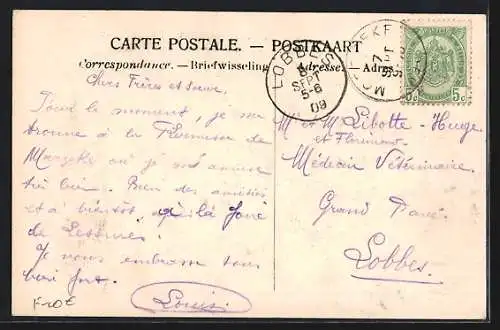 CARTE POSTALE. — POSTKAART
Correspondance. — Briefwisseling
Adresse. — Adres
LOBBES
8
SEPT
5-6
09
7
5c 5c
Chers Frères et soeur.
Pour le moment, je me
trouve à la
où je m'amuse
très bien. Bien des amitiés
et à bientôt, à la foire
de Lessines.
Je vous embrasse tous
bien fort.
Louis.
M et M Libotte-Huge
et Florimont
Médecin Vétérinaire
Grand Place
Lobbes.
F20E